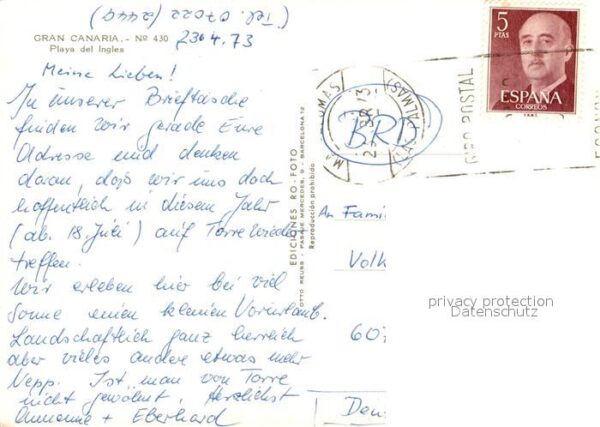 (Tel. 07022 / 2449)
GRAN CANARIA.- Nº 430
Playa del Ingles
23.4.73
Meine Lieben!
In unserer Brieftasche
finden wir gerade Eure
Adresse und denken
daran, dass wir uns doch
hoffentlich in diesem Jahr
(ab. 18. Juli) auf Torre wieder
treffen.
Wir erleben hier bei viel
Sonne einen kleinen Vorurlaub.
Landschaftlich ganz herrlich
aber vieles andere etwas mehr
Nepp. Ist man von Torre
nicht gewöhnt. Herzlichst
Annemie + Eberhard
EDICIONES RO-FOTO
OTTO REUSS - PASAJE MERCEDES, 9 - BARCELONA 12
Reproducción prohibida
5
PTAS
ESPAÑA
CORREOS
(LAS PALMAS)
POSTAL
BRD
An Fami
Volk
60
Deu
privacy protection
Datenschutz